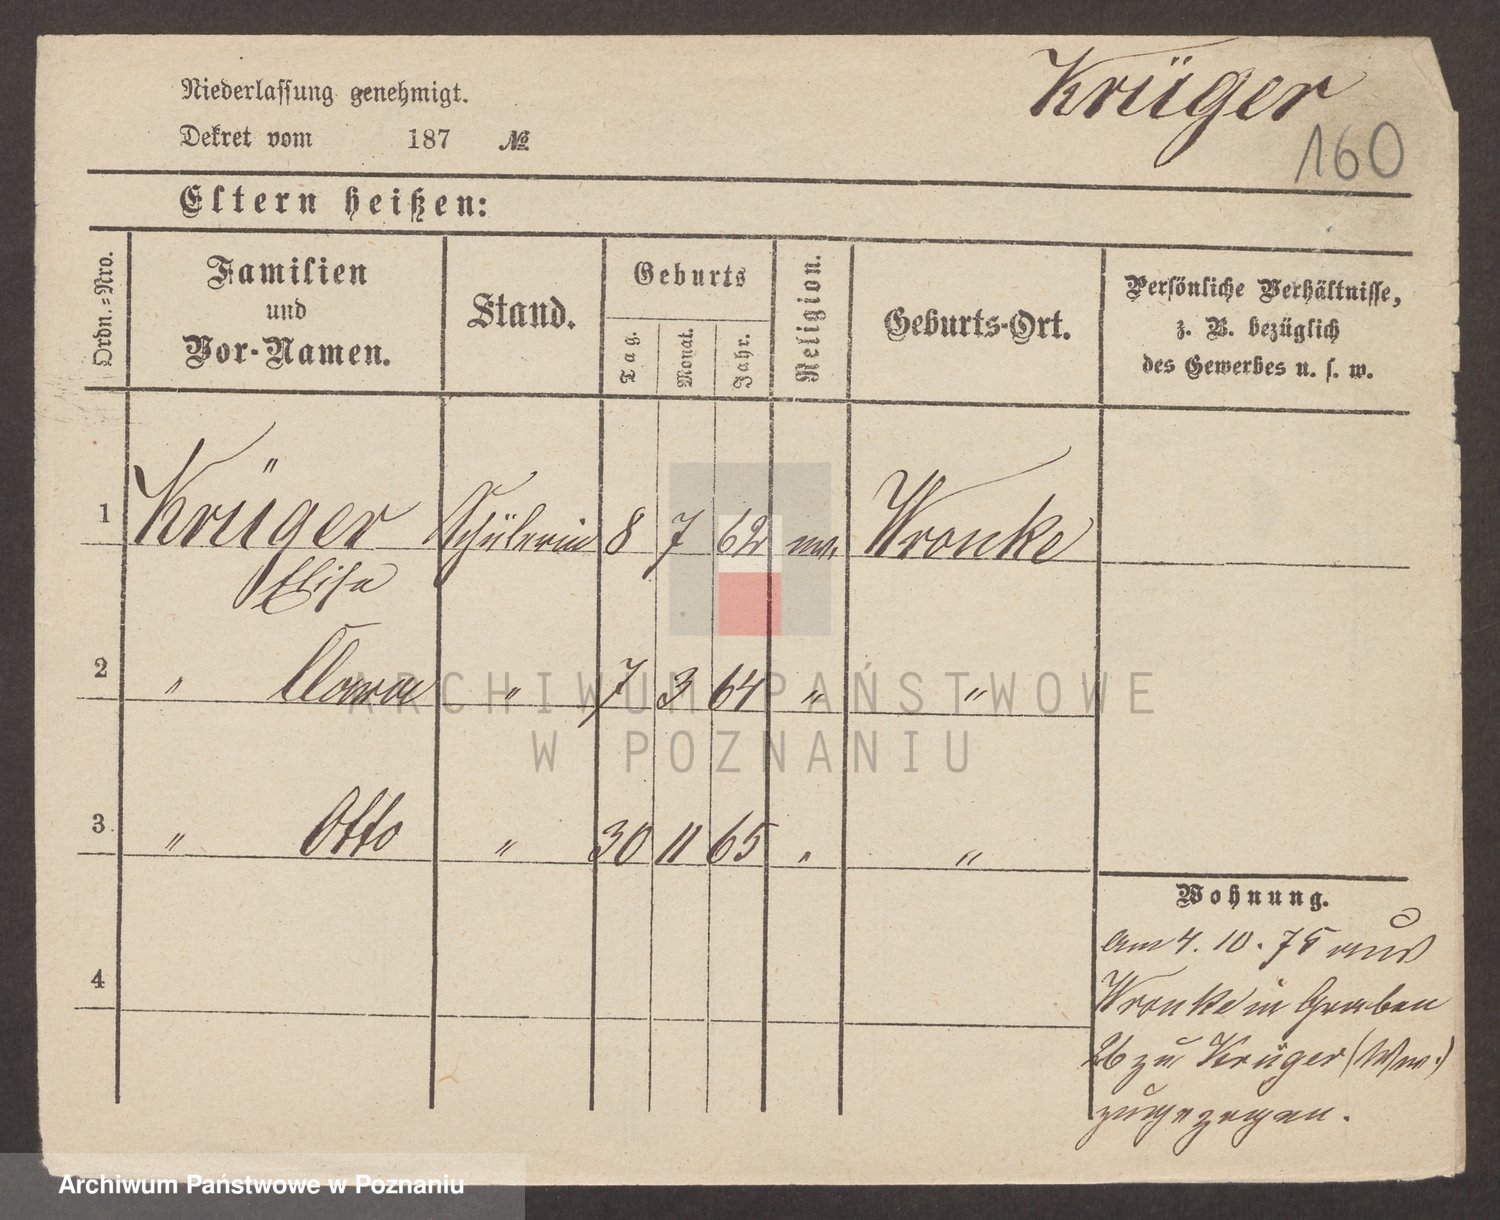 Krüger
160
Niederlassung genehmigt.
Dekret vom 187 №
Eltern heißen:
Ordn.=Nro.
Familien
und
Vor-Namen.
Stand.
Geburts
Tag.
Monat.
Jahr.
Religion.
Geburts-Ort.
Persönliche Verhältnisse,
z. B. bezüglich
des Gewerbes u. s. w.
1 Krüger Schülerin 8 7 62 Wronke
Elise
2 " Clara " 7 3 64 " "
3 " Otto " 30 11 65 " "
4
Wohnung.
Am 4. 10. 75 aus
Wronke in Graben
26 zu Krüger (Ww.)
zugezogen.
ARCHIWUM PAŃSTWOWE
W POZNANIU
Archiwum Państwowe w Poznaniu